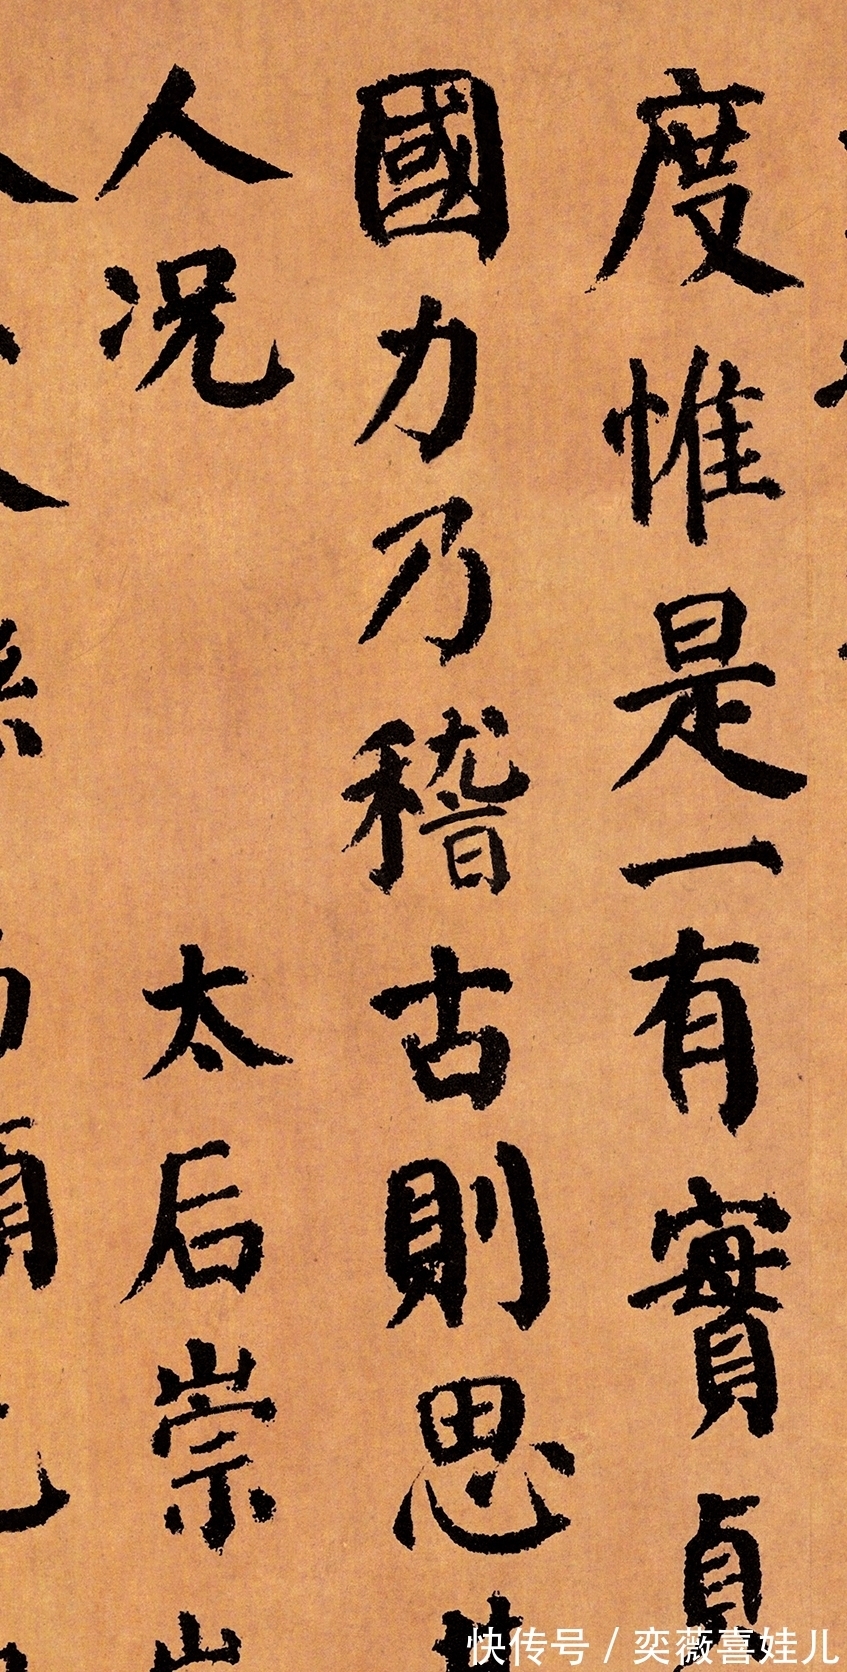 度惟是一有實貞
國力乃稽古則思其
人况 太后崇
快传号 / 奕薇喜娃儿